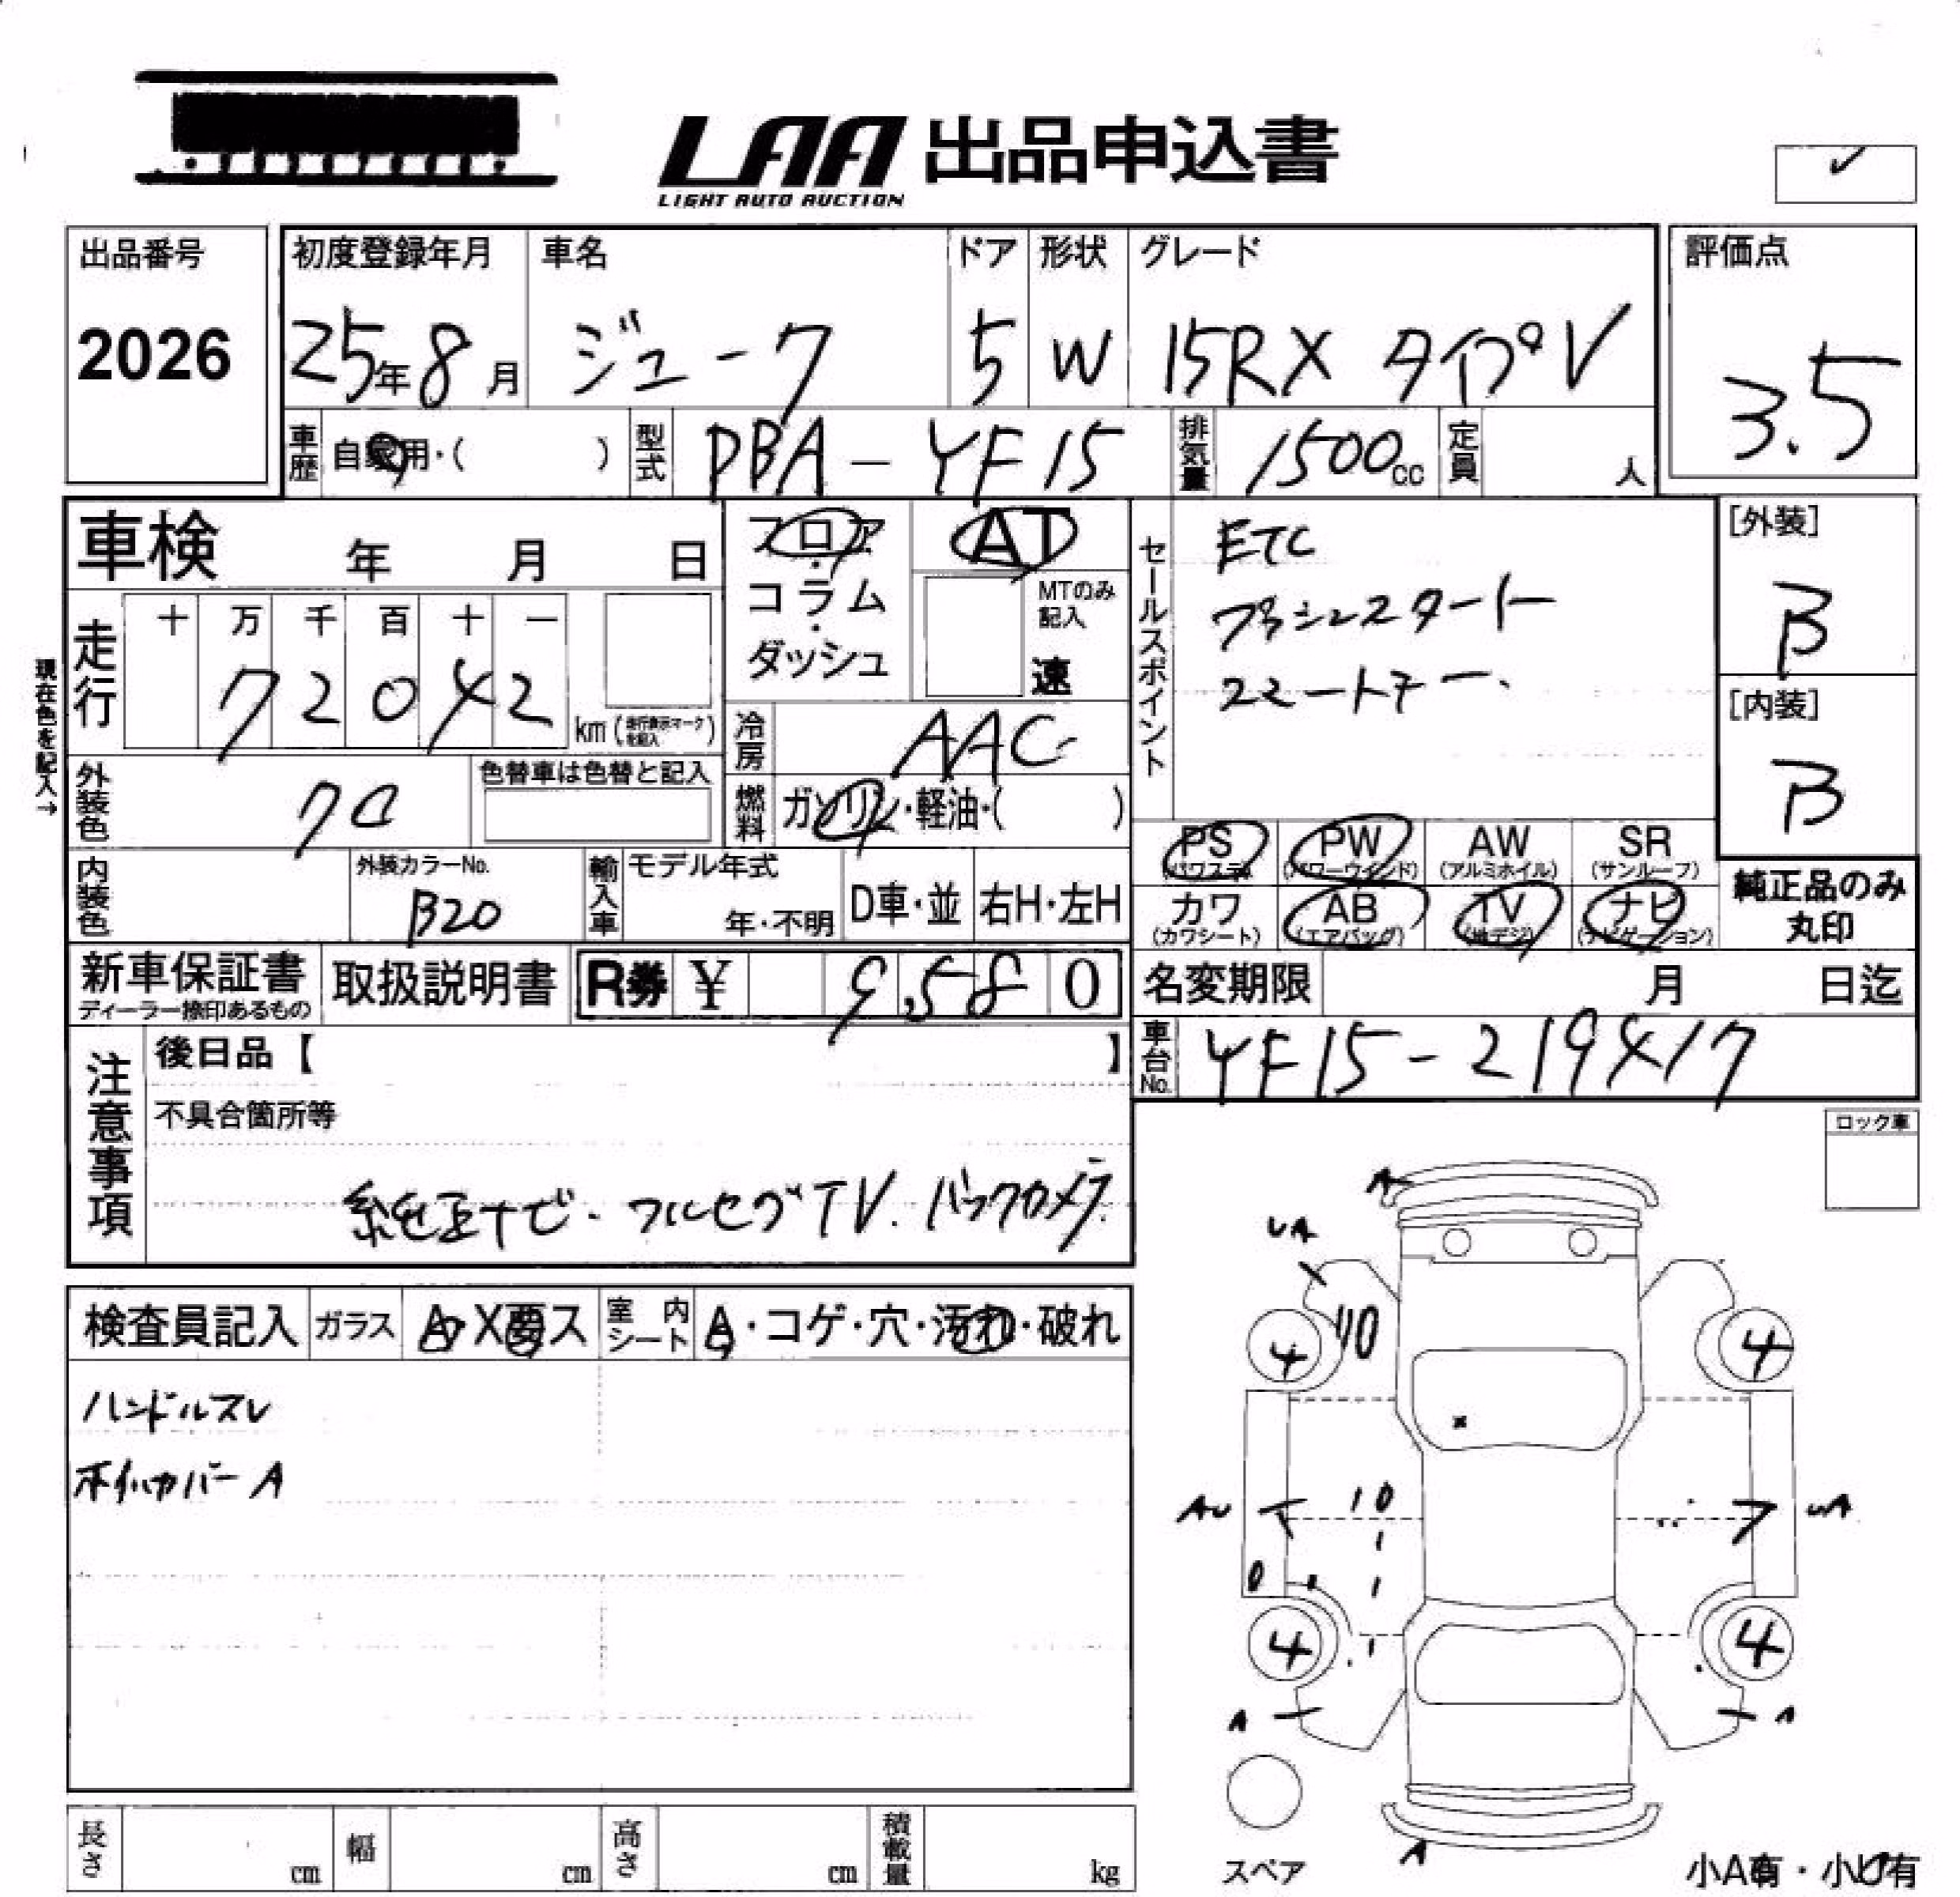 LAA 出品申込書
LIGHT AUTO AUCTION
出品番号
2026
初度登録年月
25年8月
車名
ジューク
ドア
5
形状
W
グレード
15RX タイプV
評価点
3.5
車歴
自家用・( )
型式
PBA-YF15
排気量
1500cc
定員
人
車検 年 月 日
フロア
・
コラム
・
ダッシュ
AT
MTのみ
記入
速
セールスポイント
ETC
プッシュスタート
スマートキー.
[外装]
B
[内装]
B
現在色を記入→
走行
十 万 千 百 十 一
7 2 0 4 2
km(走行表示マークを記入)
冷房
AAC
外装色
クロ
色替車は色替と記入
燃料
ガソリン・軽油・( )
PS (パワステ)
PW (パワーウインド)
AW (アルミホイル)
SR (サンルーフ)
内装色
外装カラーNo.
B20
輸入車
モデル年式
年・不明
D車・並
右H・左H
カワ (カワシート)
AB (エアバッグ)
TV (地デジ)
ナビ (ナビゲーション)
純正品のみ
丸印
新車保証書
ディーラー捺印あるもの
取扱説明書
R券 ¥ 9,580
名変期限 月 日迄
車台No.
YF15-219417
注意事項
後日品【 】
不具合箇所等
純正ナビ. フルセグTV. バックカメラ.
ロック車
検査員記入
ガラス
A・X要ス
室内シート
A・コゲ・穴・汚れ・破れ
ハンドルスレ
ホイルカバーA
A
UA
4
10
4
AU
10
UA
4
4
A
A
スペア
A
小A有・小U有
長さ cm
幅 cm
高さ cm
積載量 kg